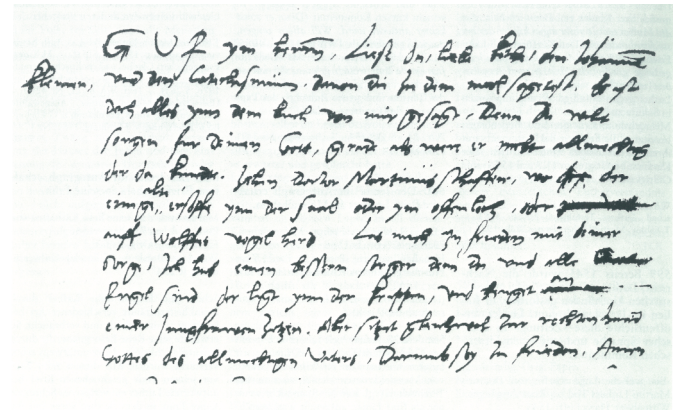 G U F ym herrn, Liest du, liebe Kethe, den Johannem
kleinen, und den Catechismum, davon du zu dem mal sagetest, Es ist
doch alles ynn dem buch von mir gesagt. Denn du wilt
sorgen fur deinen Gott, gerade als were er nicht allmechtig
der da kundte zehen Doctor Martinus schaffen, wo der
einige alte ersoffe ynn der Saal oder ym ofenloch, oder
auff Wolffes vogel herd Las mich zu frieden mit deiner
sorge, Ich hab einen bessern sorger denn du und alle
Engel sind der ligt ynn der krippen, und henget an
einer Jungfrawen zitzen, Aber sitzet gleichwol zur rechten hand
Gottes des allmechtigen Vaters, Darumb sey zu frieden, Amen